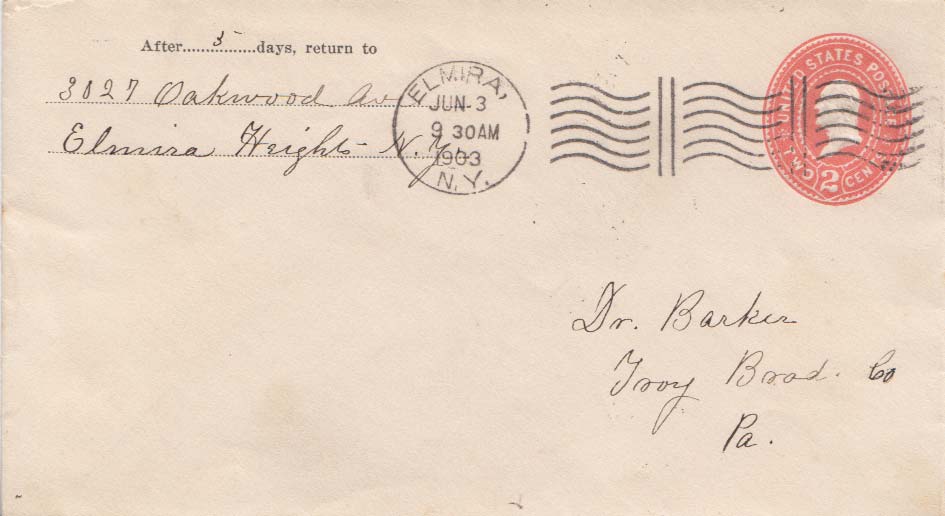 After......5......days, return to
3027 Oakwood Av
Elmira Heights N.Y.
ELMIRA,
JUN 3
9 30AM
1903
N.Y.
UNITED STATES POSTAGE
TWO 2 CENTS
Dr. Barker
Troy Brad. Co
Pa.